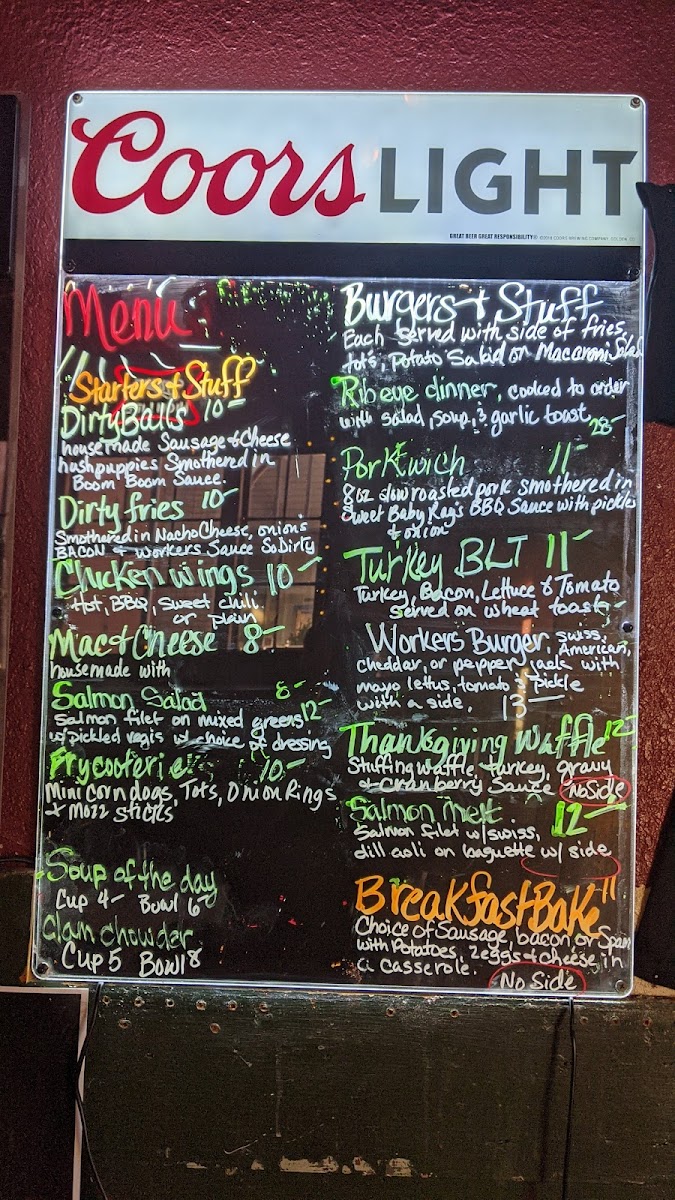 Coors LIGHT
GREAT BEER GREAT RESPONSIBILITY®
Menu
Starters & Stuff
Dirty Balls 10-
housemade Sausage & Cheese
hushpuppies Smothered in
Boom Boom Sauce.
Dirty fries 10-
Smothered in Nacho Cheese, onion's
BACON & Workers Sauce So Dirty
Chicken wings 10-
Hot, BBQ, Sweet chili
or plain
Mac & Cheese 8-
housemade with
Salmon Salad 8-
Salmon filet on mixed greens 12-
w/pickled vegis w/ choice of dressing
Frycooterie 10-
Mini corn dogs, Tots, Onion Rings
& Mozz sticks
Soup of the day
Cup 4- Bowl 6-
Clam chowder
Cup 5 Bowl 8
Burgers & Stuff
Each served with side of fries,
tots, Potato Salad or Macaroni Salad
Ribeye dinner, cooked to order
with salad, soup, & garlic toast 28-
Pork wich 11-
8oz slow roasted pork smothered in
Sweet Baby Ray's BBQ Sauce with pickles
& onion
Turkey BLT 11-
Turkey, Bacon, Lettuce & Tomato
Served on wheat toast
Workers Burger, swiss,
American,
cheddar, or pepper jack with
mayo lettus, tomato & pickle
with a side. 13-
Thanksgiving Waffle 12-
Stuffing waffle, turkey, gravy
& Cranberry Sauce No Side
Salmon melt 12-
Salmon filet w/swiss,
dill aoli on baguette w/ side
Breakfast Bake 11
Choice of Sausage, bacon or Spam
with Potatoes, 2 eggs & cheese in
a casserole.
No Side